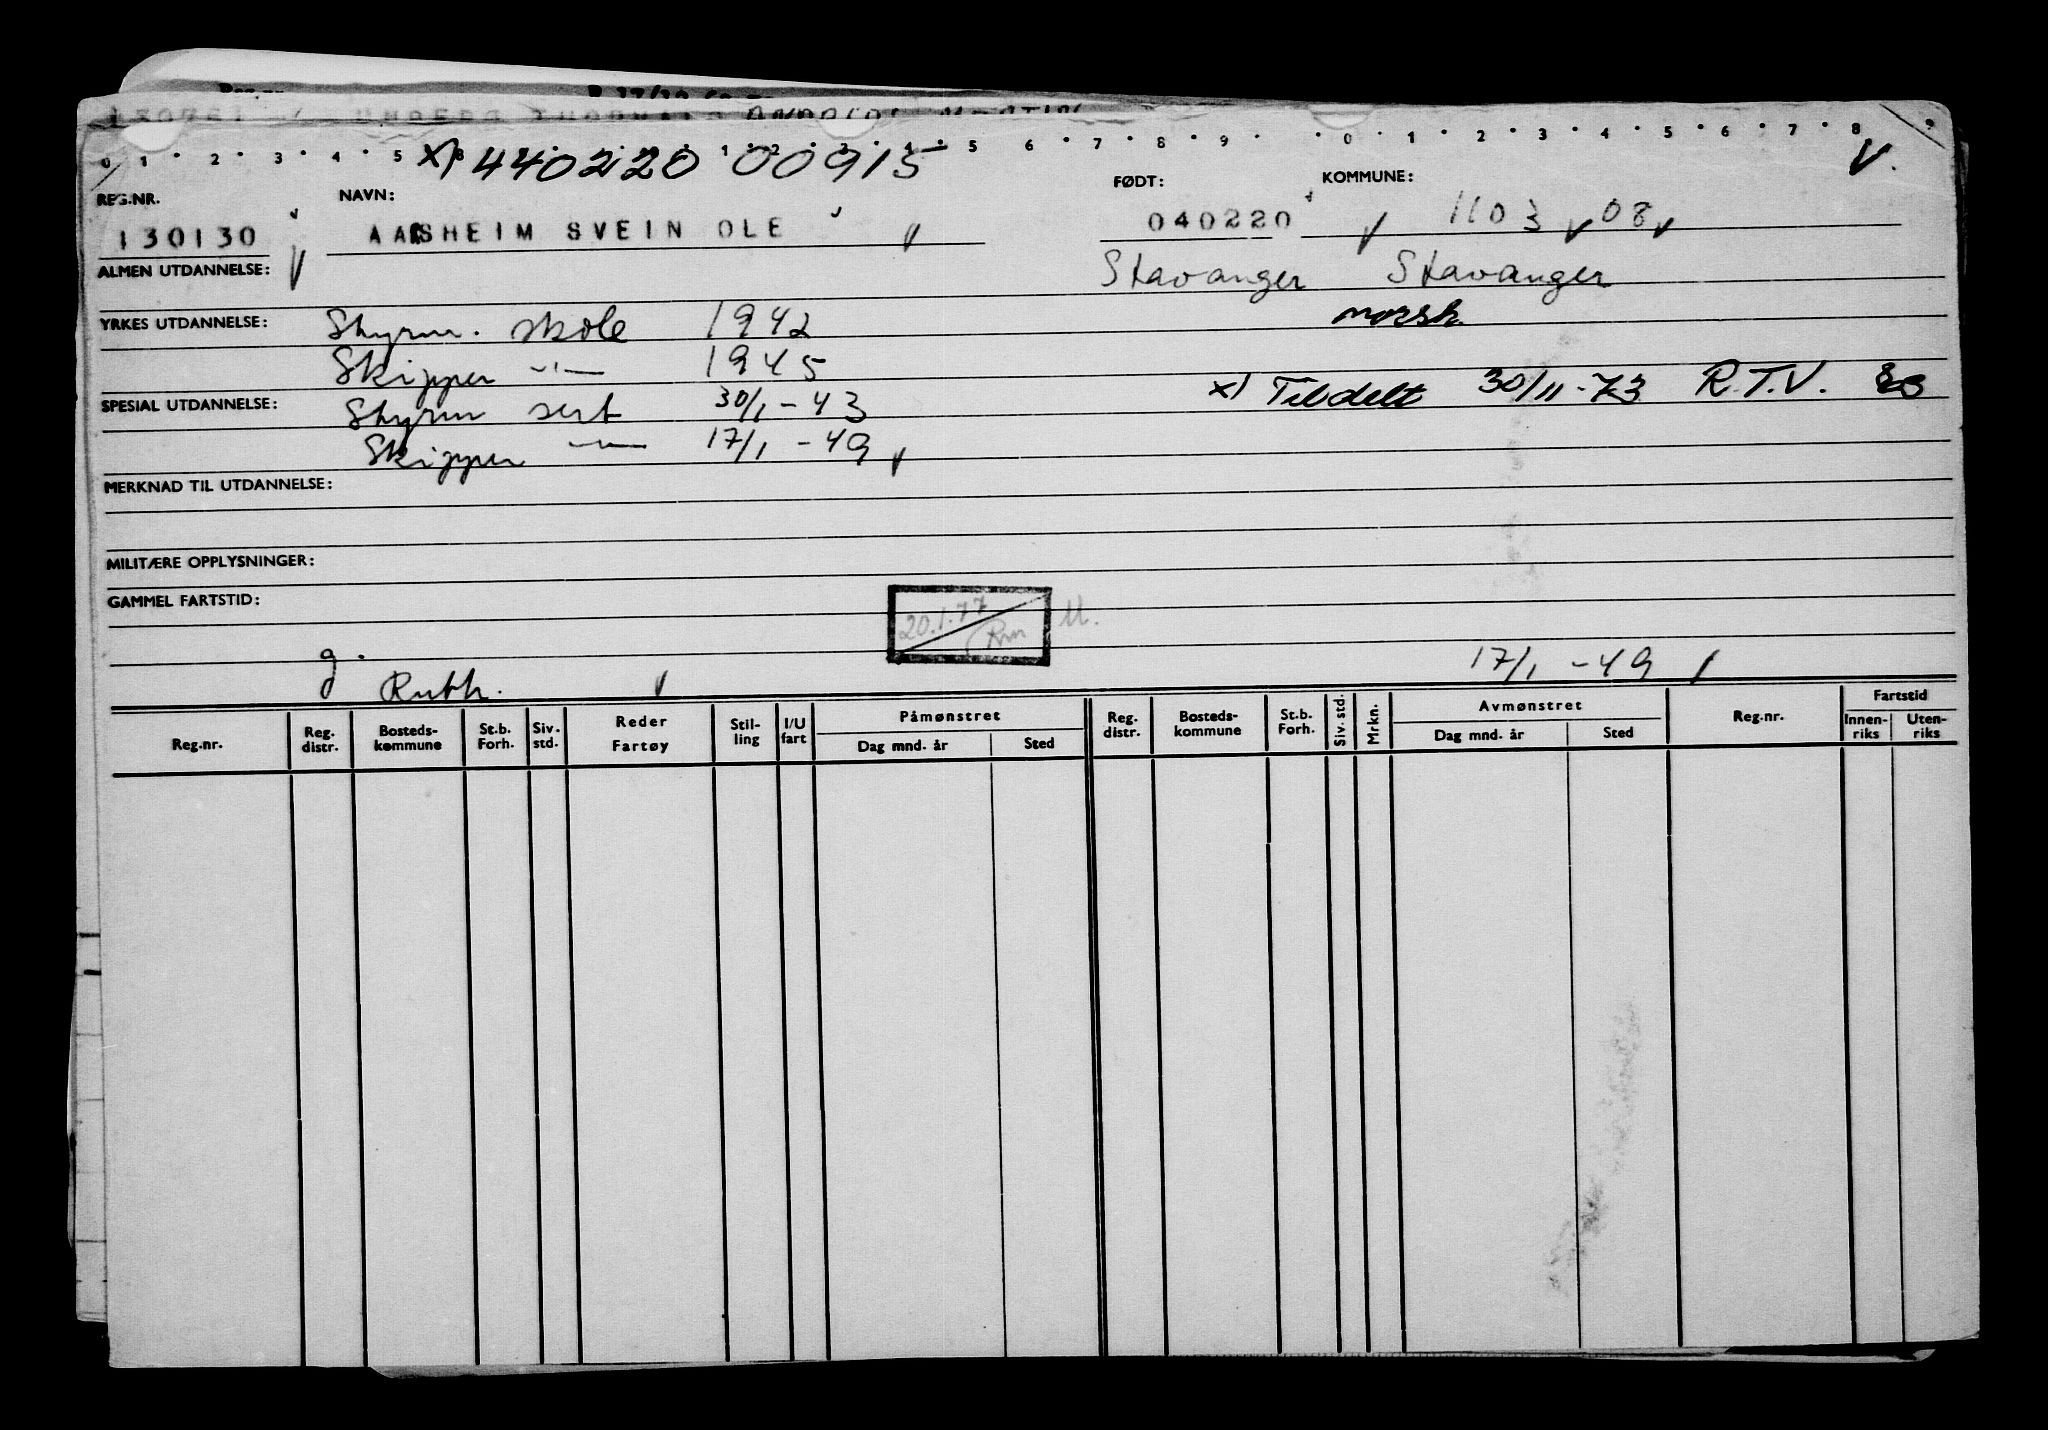 0 1 2 3 4 5 1 2 3 4 5 6 7 8 9 0 1 2 3 4 5 6 7 8 9
x) 440220 00915
REG.NR. NAVN: FØDT: KOMMUNE:
130130 AASHEIM SVEIN OLE 040220 1103 08
ALMEN UTDANNELSE: Stavanger Stavanger
YRKES UTDANNELSE: Styrm. skole 1942 norsk
Skipper -"- 1945
x) Tildelt 30/11-73 R.T.V.
SPESIAL UTDANNELSE: Styrm sert 30/1-43
Skipper -"- 17/1-49
MERKNAD TIL UTDANNELSE:
MILITÆRE OPPLYSNINGER:
GAMMEL FARTSTID:
20.1.77
Rm
g. 17/1-49
Ruth.
Reg.nr. Reg. distr. Bosteds-kommune St.b. Forh. Siv. std. Reder Fartøy Stil-ling I/U fart Påmønstret Dag mnd. år Sted Reg. distr. Bosteds-kommune St.b. Forh. Siv. std. Mrkn. Avmønstret Dag mnd. år Sted Reg.nr. Fartstid Innen-riks Uten-riks